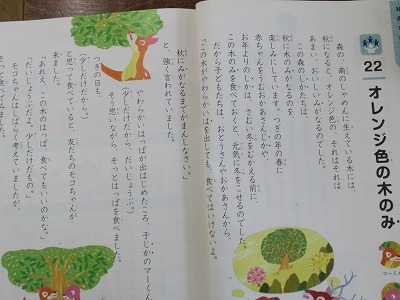 22 オレンジ色の木のみ
森の 南のしゃめんに生えている木には、
秋になると、オレンジ色の、それはそれは
あまい、おいしいみがなるのでした。
この森のしかたちは、
秋に木のみがなるのを
楽しみにしています。つぎの年の春に
赤ちゃんをうむおかあさんじかや
お年よりのしかは、さむい冬をむかえる前に、
この木のみを食べておくと、元気に冬をこせるのでした。
だから子どもたちは、おとうさんやおかあさんから、
「この木がやわらかいはを出しても、食べてはいけないよ。
秋にみがなるまでがまんしなさい。」
と、強く言われていました。
やわらかいはっぱが出はじめたころ、子じかのマーくんは
(少しだけだから、だいじょうぶ。)
そう思いながら、そっとはっぱを食べました。
つぎの日も、
(少しだけだから。)
と思って食べていると、友だちのモコちゃんが
来ました。
「あれえ、この木のはっぱ、食べてもいいのかな。」
「だいじょうぶだよ。少しだけだもの。」
モコちゃんはしばらく考えていましたが、
そっと食べてみました。
マーくん